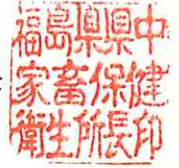 福島県県中
家畜保健
衛生所長印